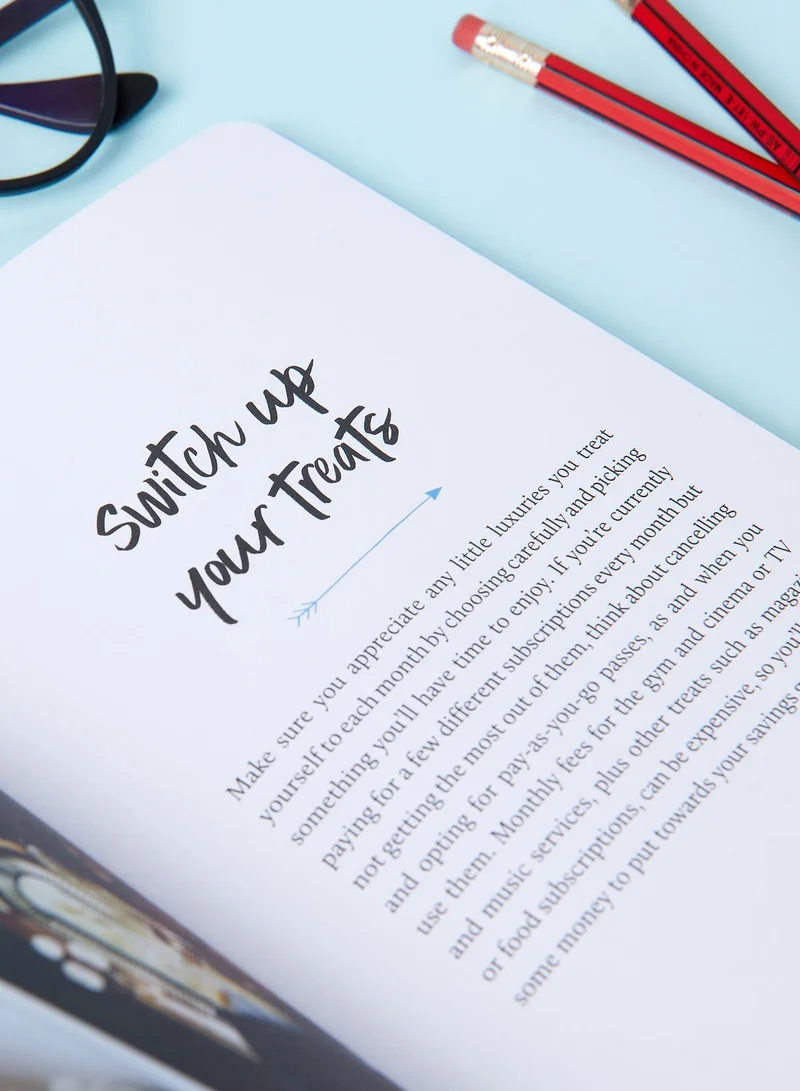 switch up
your treats
Make sure you appreciate any little luxuries you treat
yourself to each month by choosing carefully and picking
something you'll have time to enjoy. If you're currently
paying for a few different subscriptions every month but
not getting the most out of them, think about cancelling
and opting for pay-as-you-go passes, as and when you
use them. Monthly fees for the gym and cinema or TV
and music services, plus other treats such as
or food subscriptions, can be expensive, so you'll
some money to put towards your savings
MADE IN CHINA